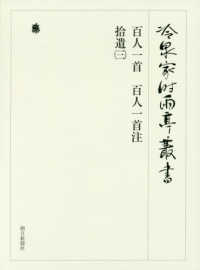 冷泉家時雨亭叢書
百人一首　百人一首注
拾遺（二）
朝日新聞社